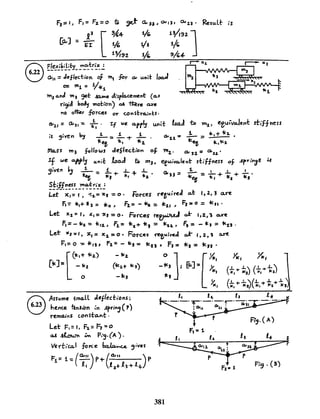 F3 = 1, F1 = F2 = 0 to get a33, a13, a23. Result is
[a] = l³/EI [ 3/64 1/6 13/192
1/6 1/3 1/6
13/192 1/6 9/64 ]
6.22
Flexibility matrix :
a11 = deflection of m1 for a unit load
on m1 = 1/k1
m2 and m3 get same displacement (as
rigid body motion) as there are
no other forces or constraints.
a21 = a31 = 1/k1. If we apply unit load to m2, equivalent stiffness
is given by 1/keq = 1/k1 + 1/k2 a22 = 1/keq = (k1 + k2)/(k1 k2)
Mass m3 follows deflection of m2. a32 = a22.
If we apply unit load to m3, equivalent stiffness of springs is
given by 1/keq = 1/k1 + 1/k2 + 1/k3. a33 = 1/keq = 1/k1 + 1/k2 + 1/k3
Stiffness matrix :
Let x1 = 1, x2 = x3 = 0. Forces required at 1, 2, 3 are
F1 = k1 + k2 = k11, F2 = - k2 = k21, F3 = 0 = k31.
Let x2 = 1, x1 = x3 = 0. Forces required at 1, 2, 3 are
F1 = - k2 = k12, F2 = k2 + k3 = k22, F3 = - k3 = k23.
Let x3 = 1, x1 = x2 = 0. Forces required at 1, 2, 3 are
F1 = 0 = k13, F2 = - k3 = k23, F3 = k3 = k33.
[k] = [ (k1 + k2) -k2 0
-k2 (k2 + k3) -k3
0 -k3 k3 ]
; [a] = [ 1/k1 1/k1 1/k1
1/k1 (1/k1 + 1/k2) (1/k1 + 1/k2)
1/k1 (1/k1 + 1/k2) (1/k1 + 1/k2 + 1/k3) ]
6.23
Assume small deflections;
hence tension in spring (P)
remains constant.
Let F1 = 1, F2 = F3 = 0
as shown in Fig. (A).
Vertical force balance gives
F1 = 1 = (a11/l1) P + (a11/(l2 + l3 + l4)) P
l1 l2 l3 l4
F1 = 1
Fig. (A)
l1 l2 l3 l4
a12 a22 a32
P P
F2 = 1
Fig. (B)
381